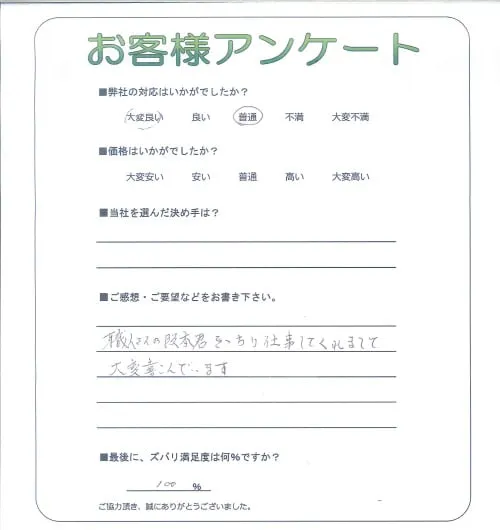 お客様アンケート
■弊社の対応はいかがでしたか？
大変良い 良い 普通 不満 大変不満
■価格はいかがでしたか？
大変安い 安い 普通 高い 大変高い
■当社を選んだ決め手は？
■ご感想・ご要望などをお書き下さい。
職人さんの阪本君きっちり仕事してくれまして
大変喜こんでいます
■最後に、ズバリ満足度は何％ですか？
100 ％
ご協力頂き、誠にありがとうございました。